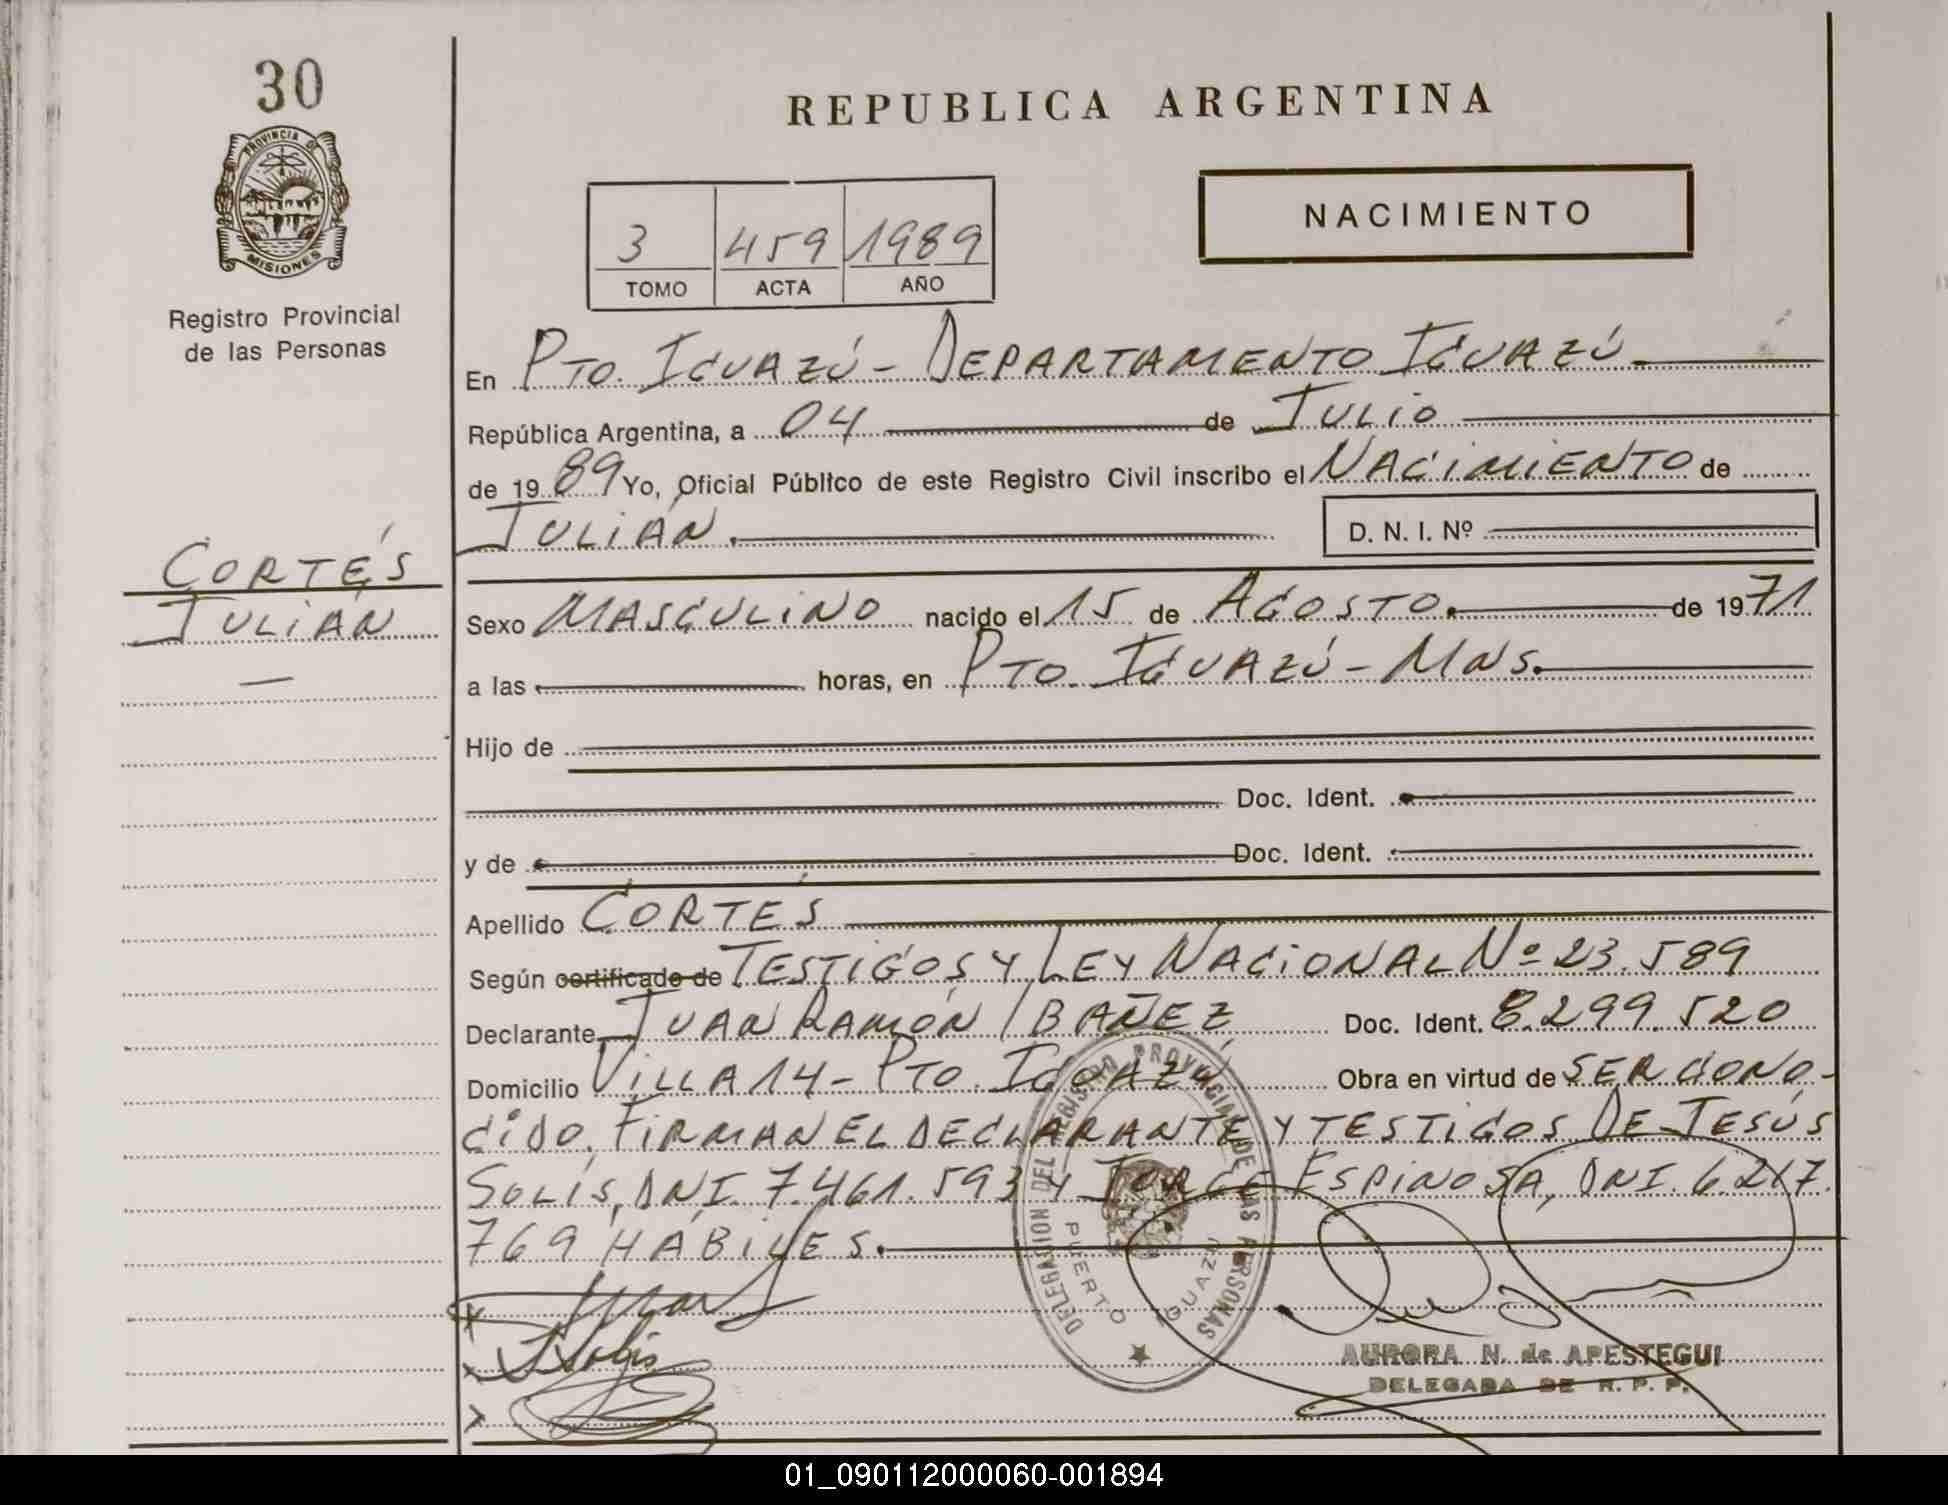 30
PROVINCIA DE
MISIONES
Registro Provincial
de las Personas
CORTÉS
JULIÁN
—
REPUBLICA ARGENTINA
3 459 1989
TOMO ACTA AÑO
NACIMIENTO
En PTO. IGUAZÚ - DEPARTAMENTO IGUAZÚ
República Argentina, a 04 de JULIO
de 1989 Yo, Oficial Público de este Registro Civil inscribo el NACIMIENTO de
JULIÁN. D. N. I. Nº
Sexo MASCULINO nacido el 15 de AGOSTO. de 1971
a las horas, en PTO. IGUAZÚ - MNS.
Hijo de
Doc. Ident.
y de Doc. Ident.
Apellido CORTÉS
Según certificado de TESTIGOS Y LEY NACIONAL Nº 23.589
Declarante JUAN RAMÓN IBAÑEZ Doc. Ident. 8.299.520
Domicilio VILLA 14 - PTO. IGUAZÚ Obra en virtud de SER CONO-
CIDO. FIRMAN EL DECLARANTE Y TESTIGOS DE JESÚS
SOLÍS, DNI. 7.461.593 Y JORGE ESPINOSA, DNI. 6.217.
769 HÁBILES.
DELEGACION DEL REGISTRO PROVINCIAL DE LAS PERSONAS
PUERTO IGUAZU
AURORA N. de APESTEGUI
DELEGADA DE R. P. P.
01_090112000060-001894